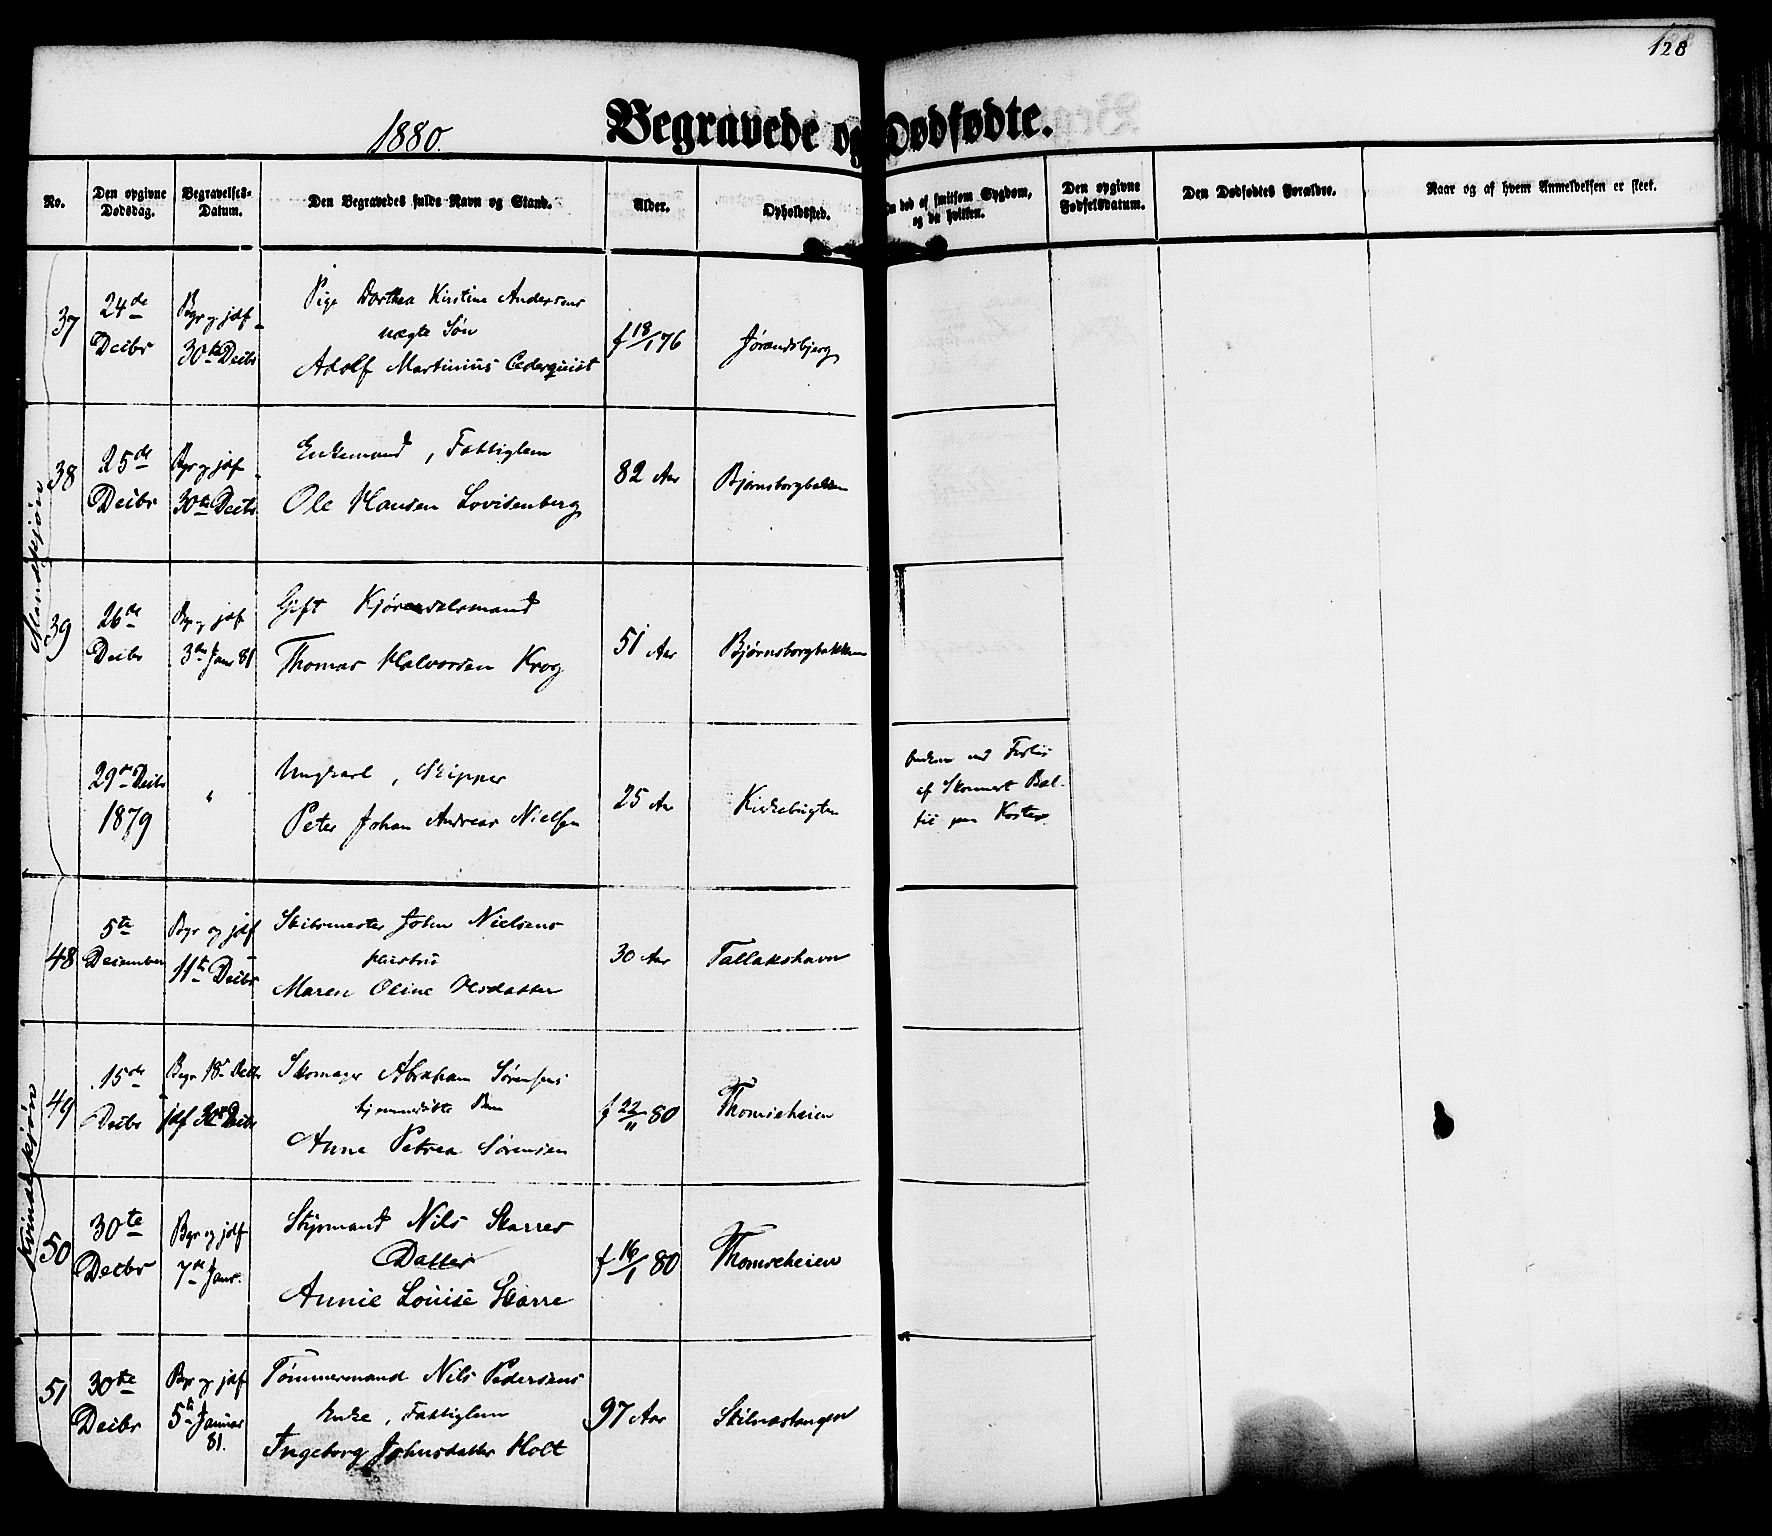 128
1880.
Begravede og Dødfødte.
No.
Den opgivne Dødsdag.
Begravelses-Datum.
Den Begravedes fulde Navn og Stand.
Alder.
Opholdssted.
Om død af smitsom Sygdom, og da hvilken.
Den opgivne Fødselsdatum.
Den Dødfødtes Forældre.
Naar og af hvem Anmeldelsen er skeet.
Mandskjøn
37
24de Decbr
Bgr og jdf 30te Decbr
Pige Dorthea Kirstine Andersens
uægte Søn
Adolf Martinius Cederquist
f 18/1 76
Jørandsbjerg
38
25de Decbr
Bgr og jdf 30te Decbr
Enkemand, Fattiglem
Ole Hansen Lovisenberg
82 Aar
Bjørnsborgbakken
39
26de Decbr
Bgr og jdf 3die Janr 81
Gift Kjørendalsmand
Thomas Halvorsen Krog
51 Aar
Bjørnsborgbakken
29de Decbr 1879
"
Ungkarl, Skipper
Peter Johan Andreas Nielsen
25 Aar
Kirkebugten
ved Forlis
af Skonnert Bal-
til paa
Kvindekjøn
48
5te December
Bgr og jdf 11te Decbr
Skibsmester John Nielsens
Hustru
Maren Oline Olsdatter
30 Aar
Tallakshavn
49
15de Decbr
Bgr 18de Decbr
jdf 30te Decbr
Skomager Abraham Sørensens
hjemmedøbte Barn
Anne Petrea Sørensen
f 22/11 80
Thomseheien
50
30te Decbr
Bgr og jdf 7de Janr.
Styrmand Nils Skarres
Datter
Annie Louise Skarre
f 16/1 80
Thomseheien
51
30te Decbr
Bgr og jdf 5te Januar 81.
Tømmermand Nils Pedersens
Enke, Fattiglem
Ingeborg Johnsdatter Holt
97 Aar
Skilnastangen